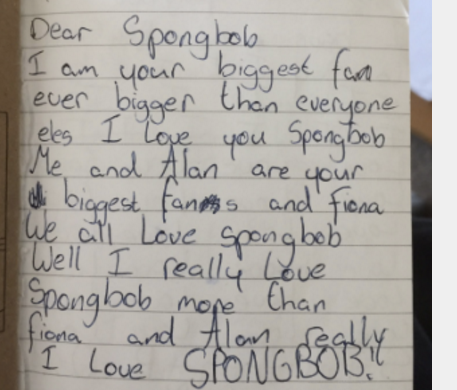 Dear Spongbob
I am your biggest fan
ever bigger than everyone
eles I Love you Spongbob
Me and Alan are your
biggest fans and fiona
We all Love spongbob
Well I really Love
Spongbob more than
fiona and Alan really
I Love SPONGBOB!!